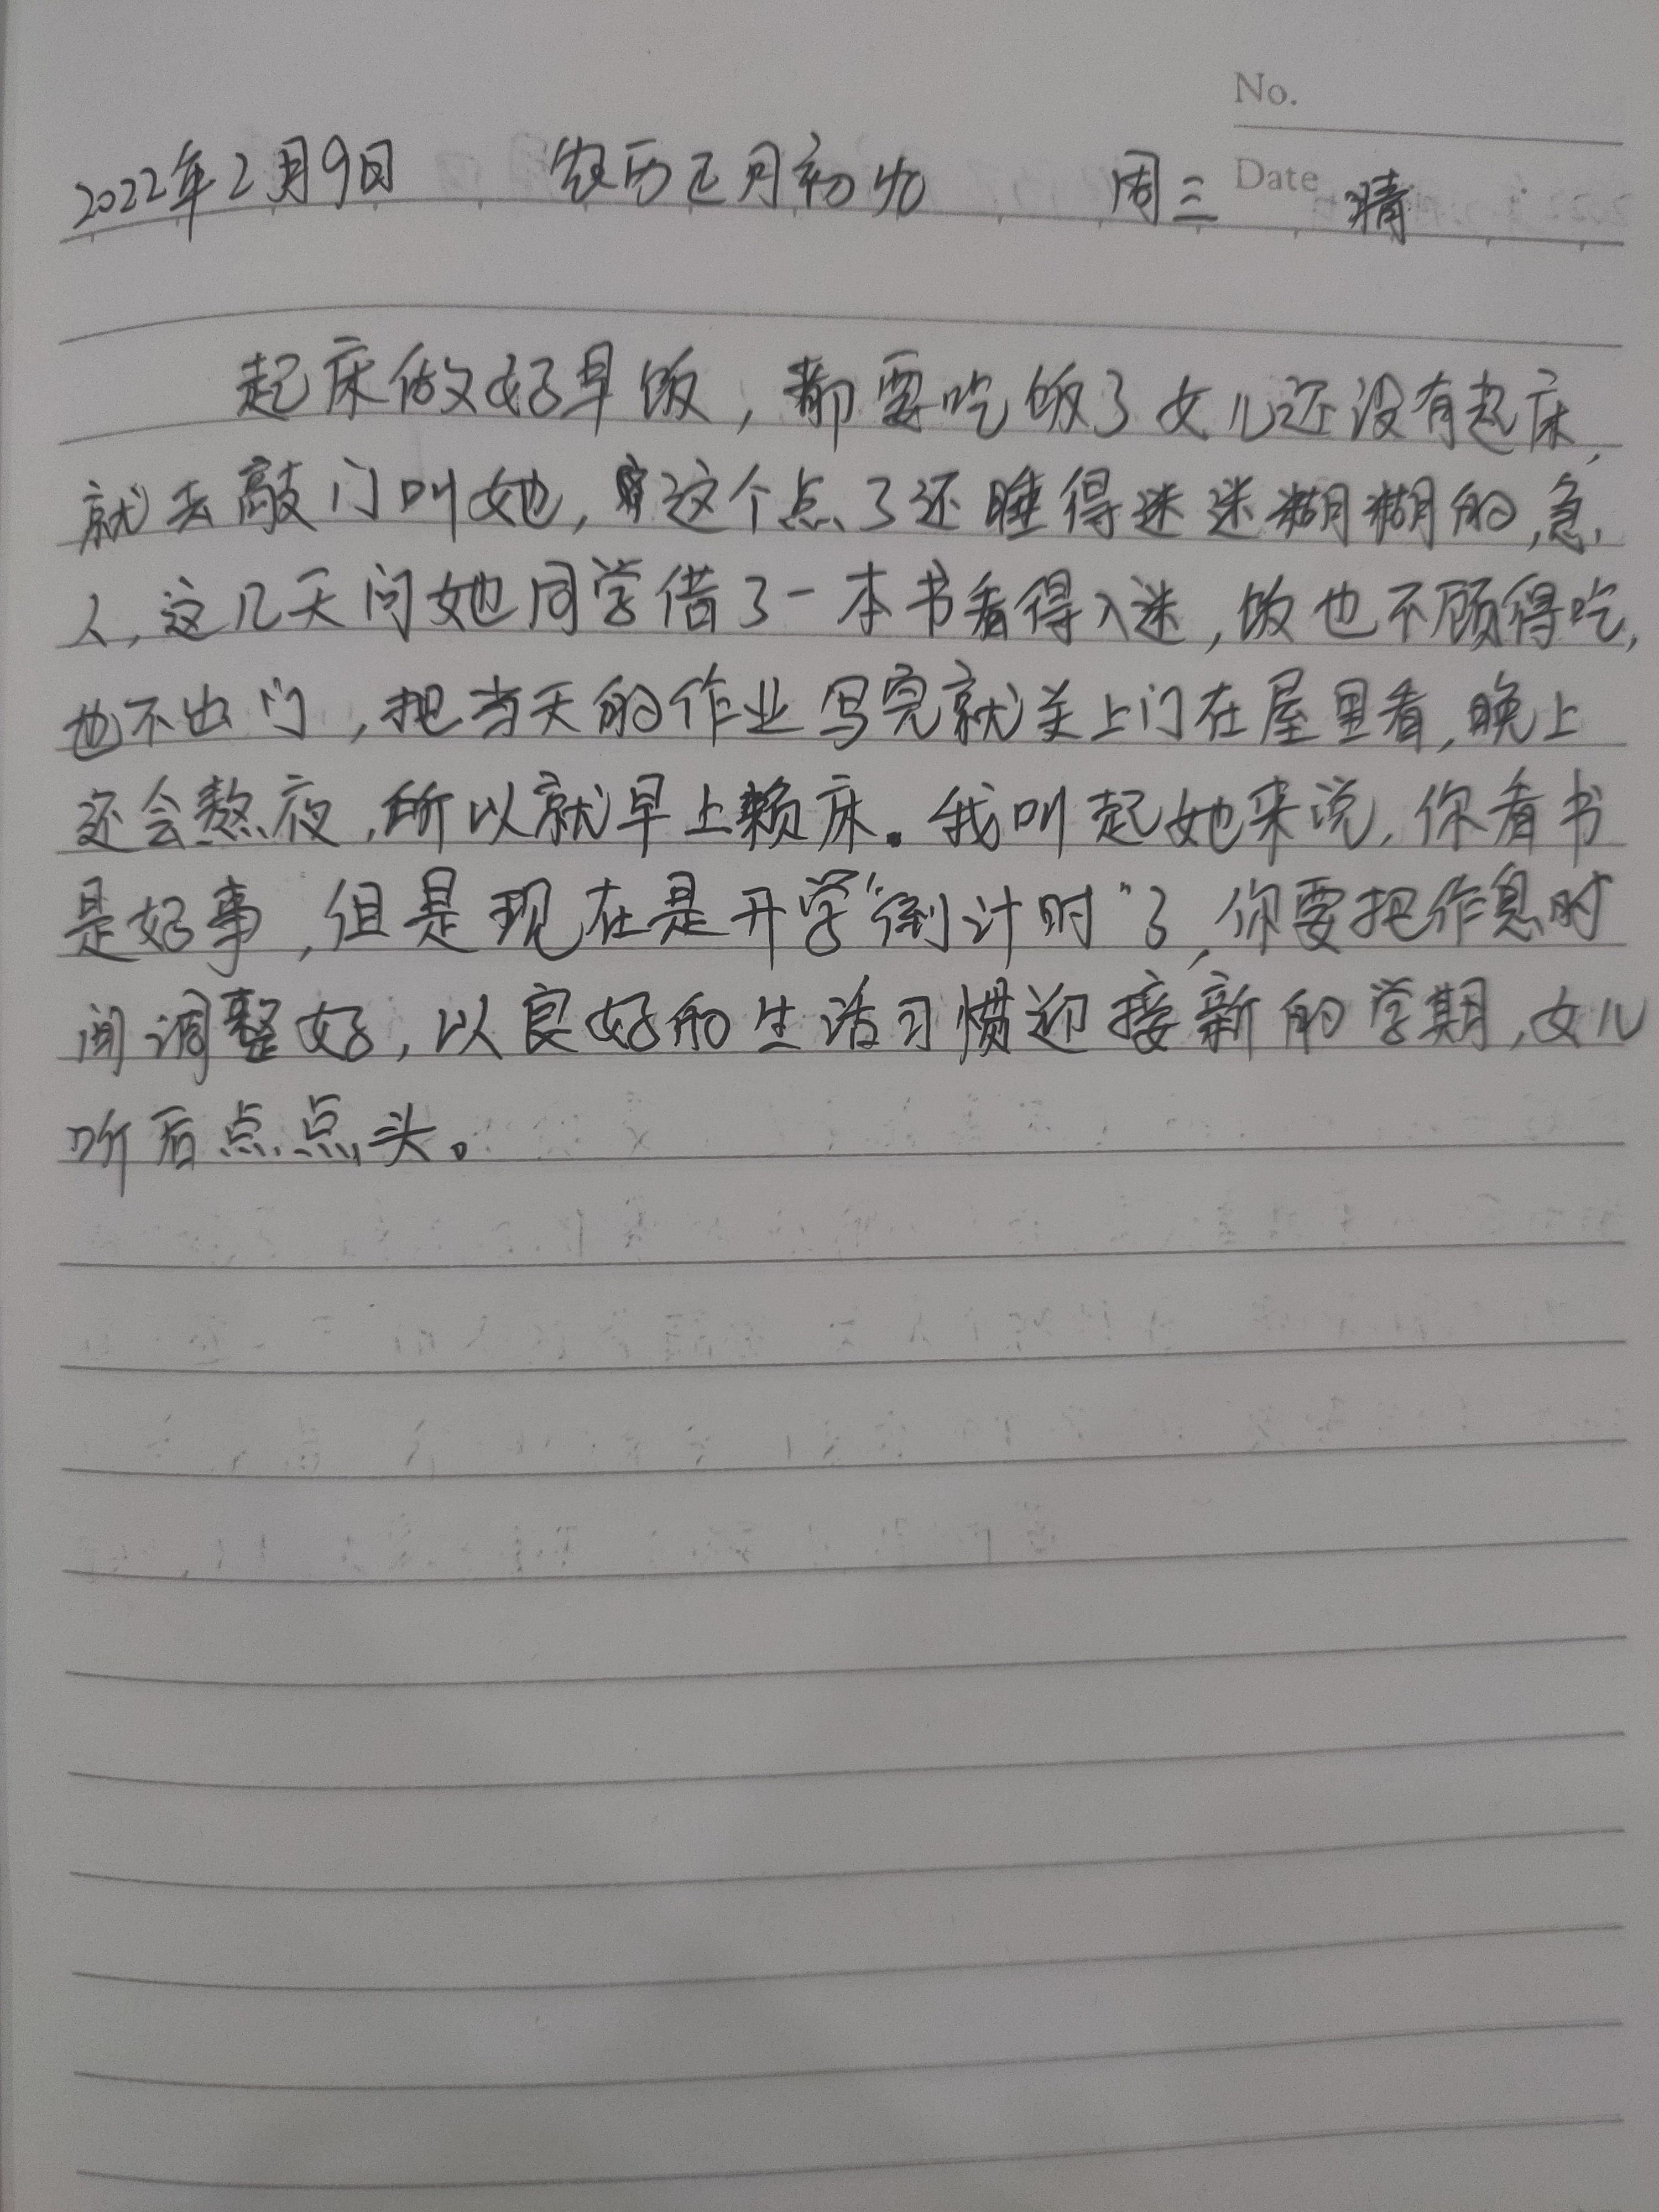 No.
2022年2月9日 农历正月初九 周三 Date 晴
起床做好早饭,都要吃饭了女儿还没有起床,
就去敲门叫她,这个点了还睡得迷迷糊糊的,急
人,这几天问她同学借了一本书看得入迷,饭也不顾得吃,
也不出门,把当天的作业写完就关上门在屋里看,晚上
还会熬夜,所以就早上赖床。我叫起她来说,你看书
是好事,但是现在是开学“倒计时”了,你要把作息时
间调整好,以良好的生活习惯迎接新的学期,女儿
听后点点头。